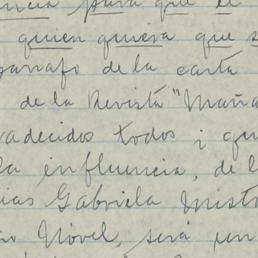 para que el
quien quiera que s
parrafo de la carta
de la Revista "Maña
radecidos todos i qu
la influencia, de l
ias Gabriela Mistr
Nóvel, será un